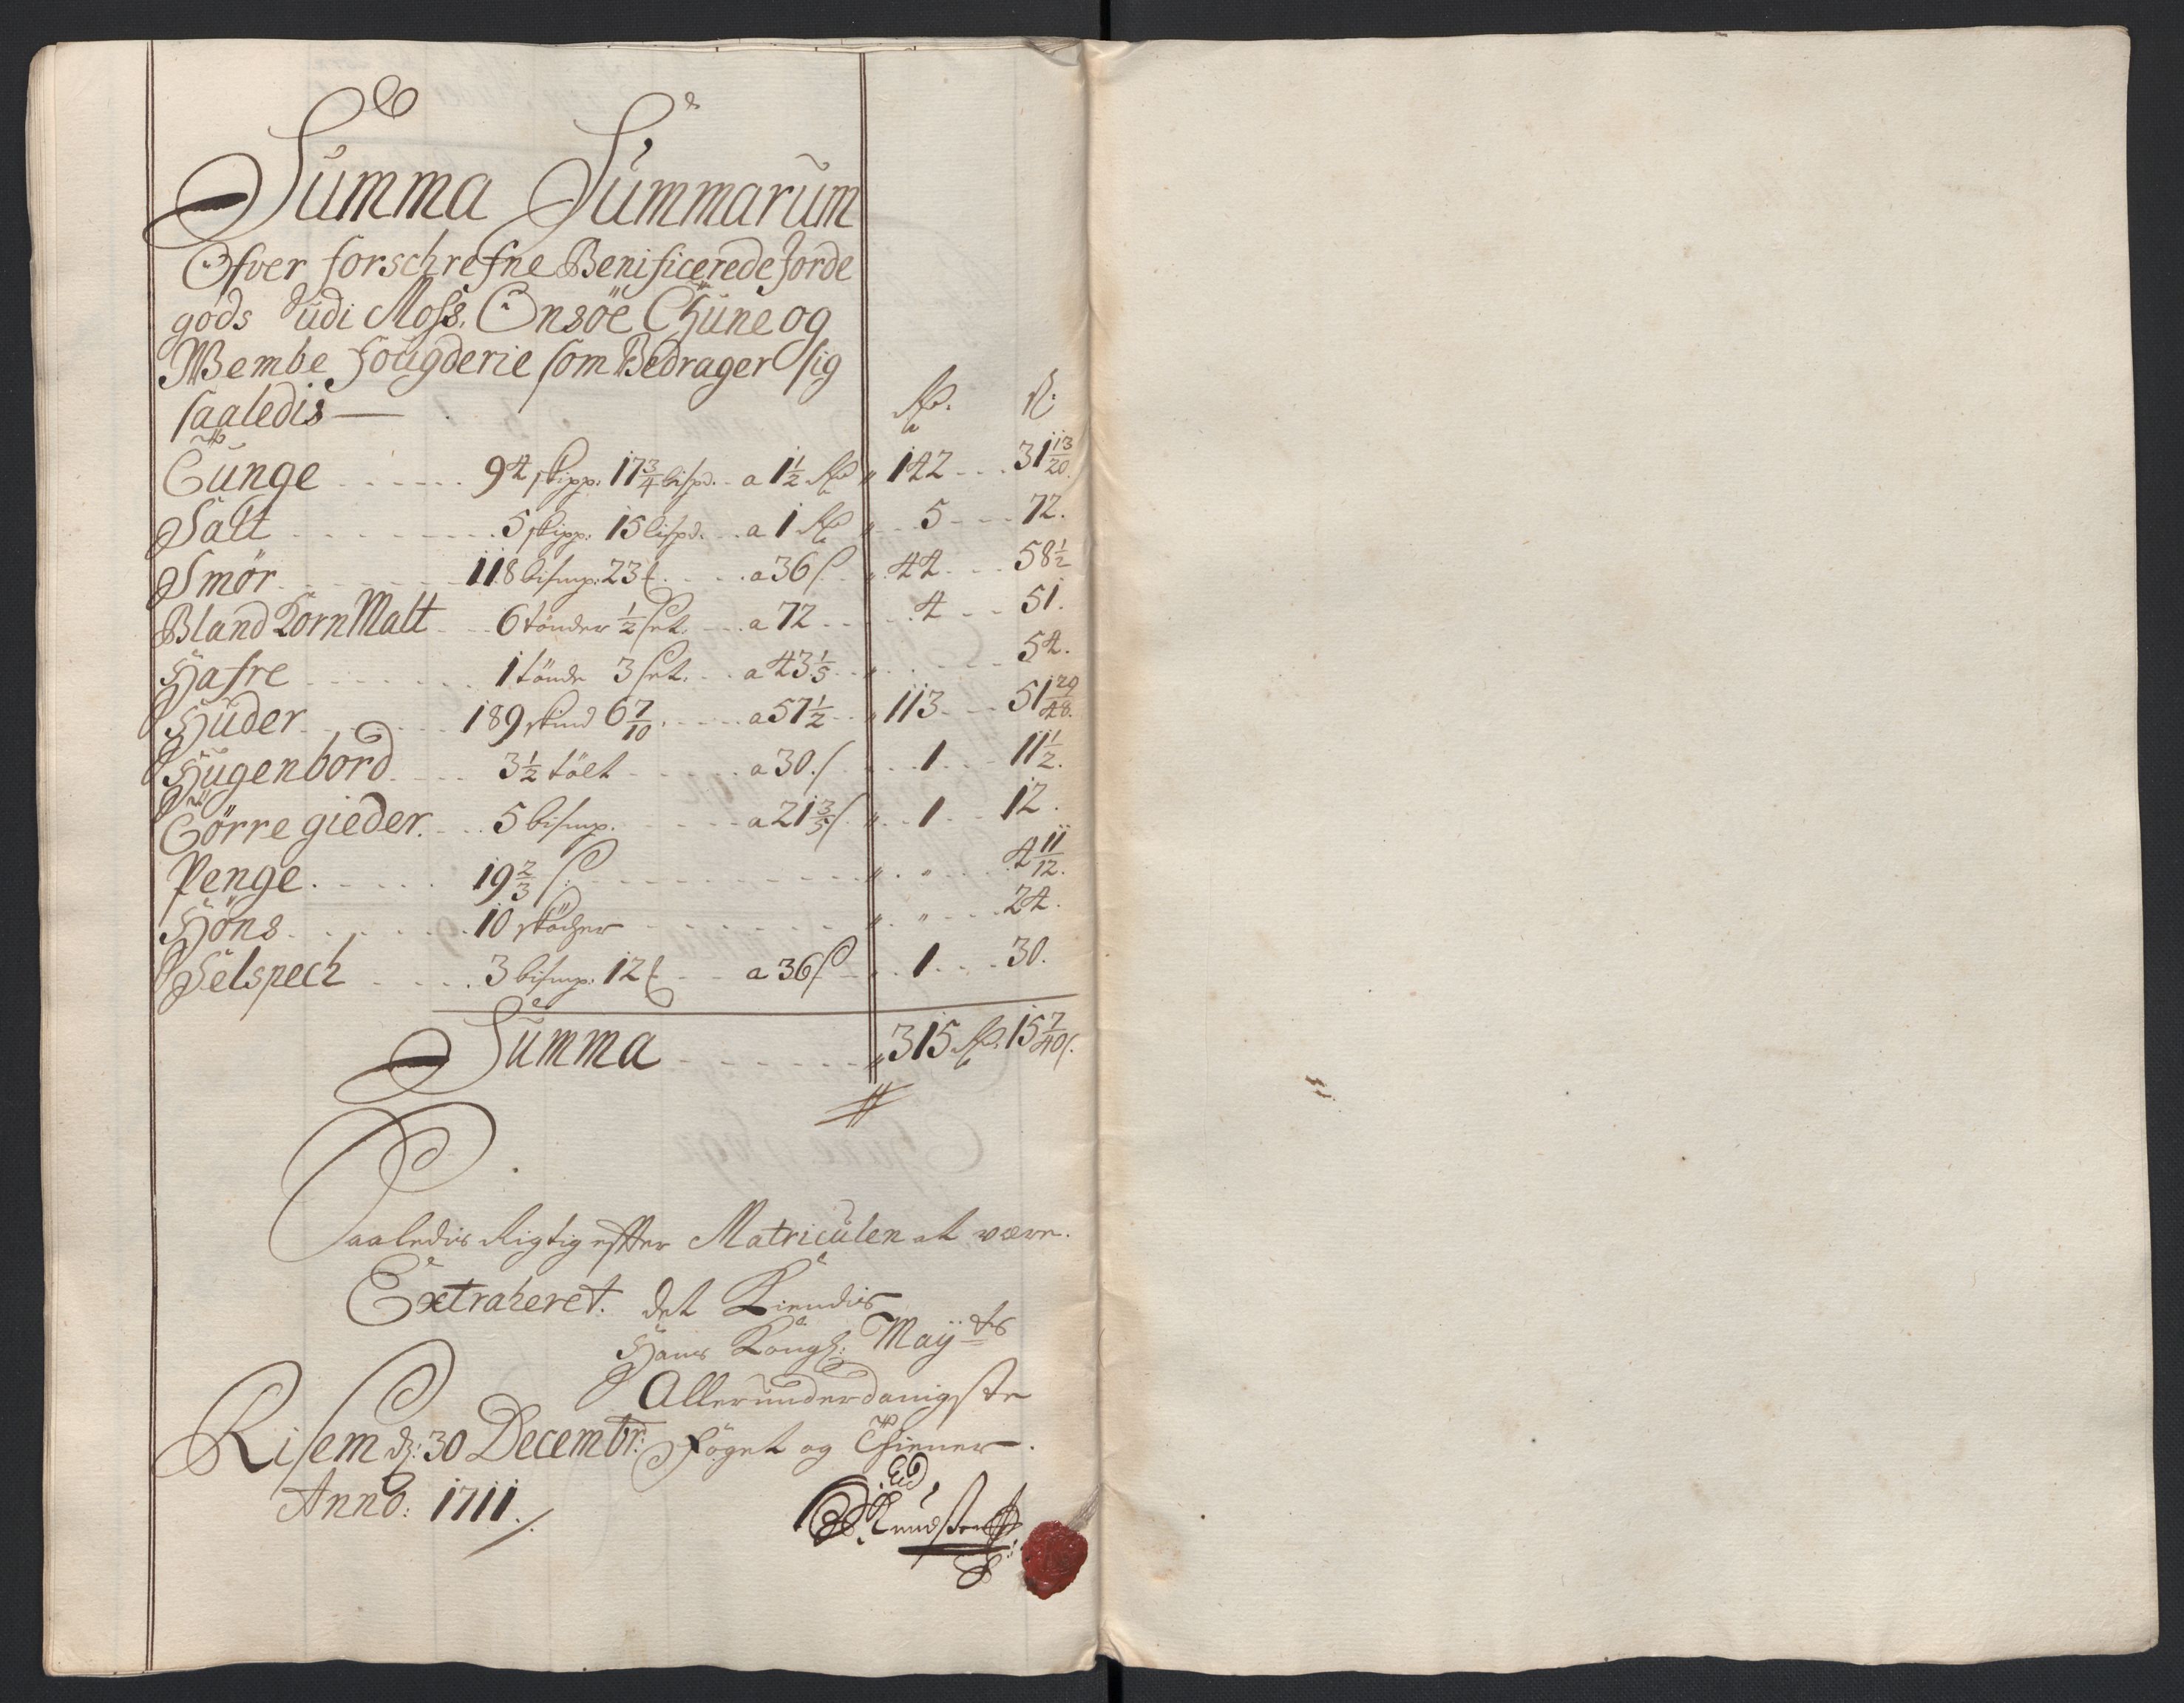 Summa Summarum
Ofver forschrefne Benificerede Jorde
gods udi Moss, Onsöe Thune og
Wembe Fougderie som Bedrager sig
saaledis —
Rd. s.
Tunge 94 skipp: 17 3/4 lispd. a 1 1/2 Rd 142 31 13/20
Salt 5 skipp: 15 lispd. a 1 Rd 5 72.
Smör 118 bismp: 23 a 36 s. 44 58 1/2
Bland Korn Malt 6 tönder 1/2 set. a 72 4 51.
Hafre 1 tönde 3 set. a 43 1/5 54.
Huder 189 skind 6 7/10. a 57 1/2 113 51 29/48.
Hugenbord 3 1/2 tölt a 30 s 1 11 1/2.
Törre gieder 5 bismp. a 21 3/5 s 1 12.
Penge 19 2/3 s: 4 11/12.
Höns 10 stöcher 24.
Selspech 3 bismp: 12 a 36 s 1 30.
Summa 315 Rd. 15 7/40 s.
Saaledis Rigtig efter Matriculen at være
Extraheret. det Kiendis
Hans Kongl: Maÿts
Allerunderdanigste
Risem d: 30 Decembr: Foget og Thiener.
Anno: 1711.
Knudsen